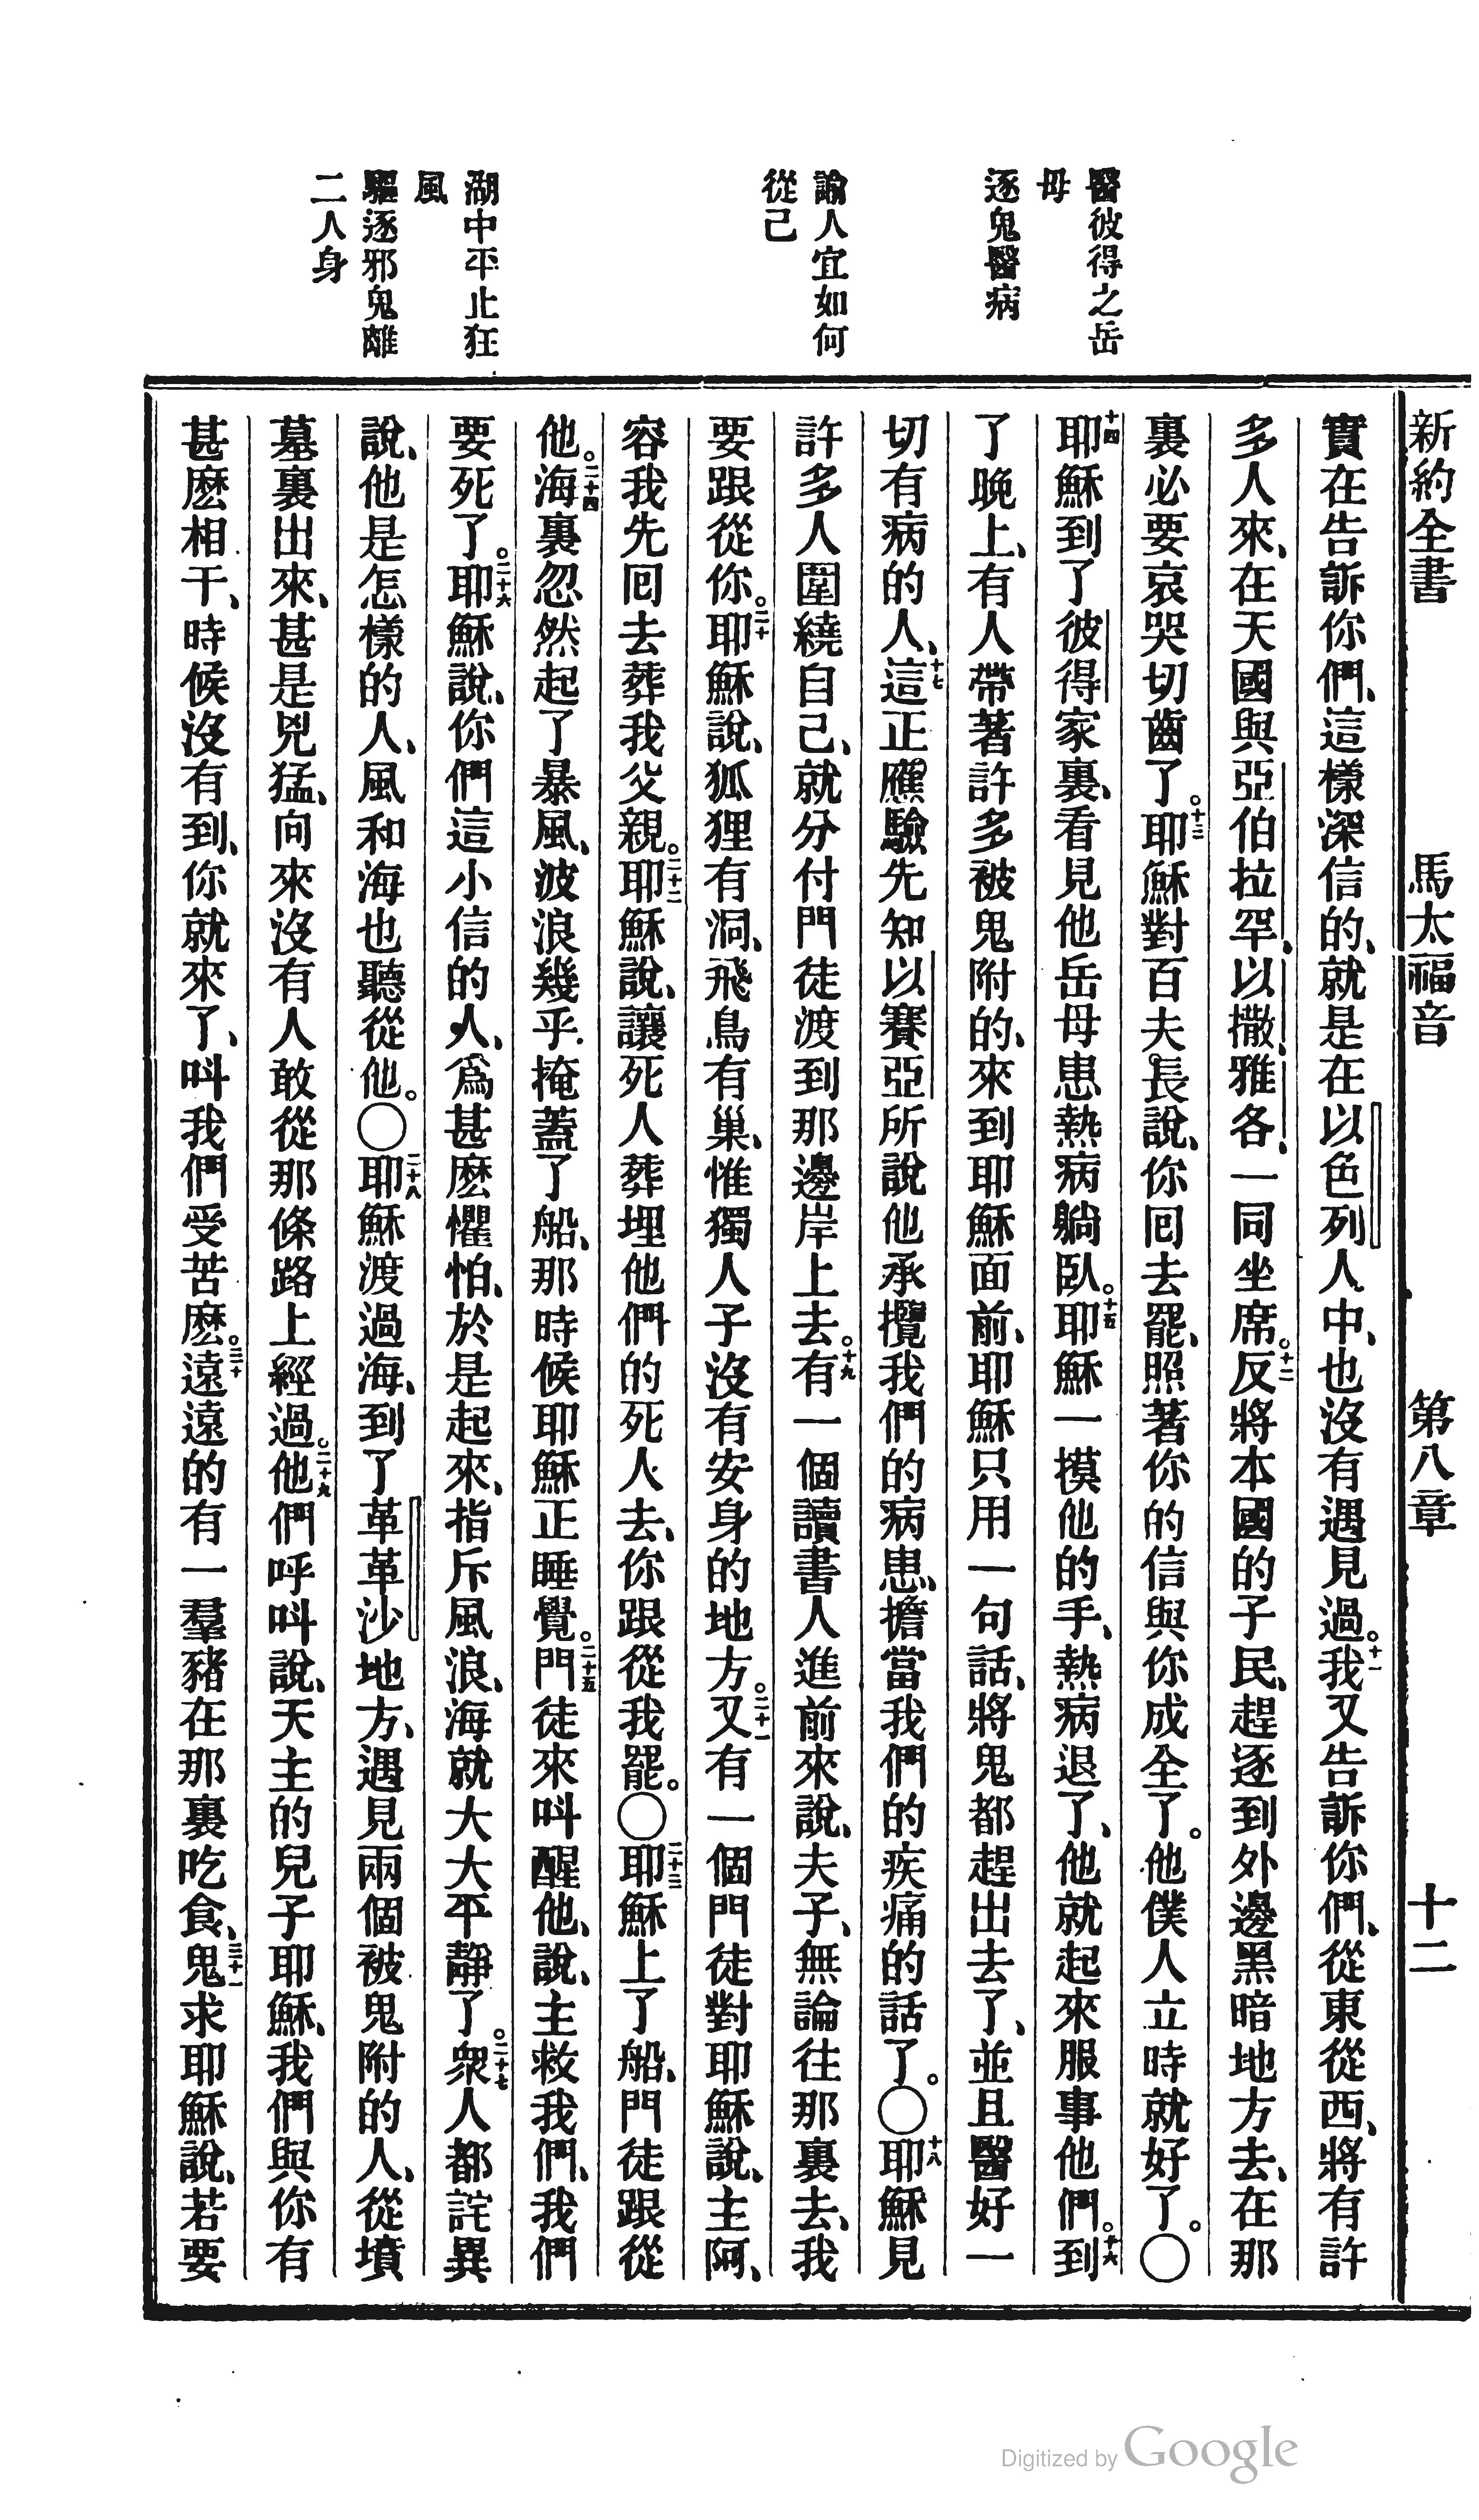 新約全書 馬太福音 第八章 十二
醫彼得之岳
母
逐鬼醫病
諭人宜如何
從己
湖中平止狂
風
驅逐邪鬼離
二人身
實在告訴你們、這樣深信的、就是在以色列人中、也沒有遇見過。十一我又告訴你們、從東從西、將有許
多人來、在天國與亞伯拉罕、以撒、雅各、一同坐席。十二反將本國的子民、趕逐到外邊黑暗地方去、在那
裏必要哀哭切齒了。十三耶穌對百夫長說、你回去罷、照著你的信與你成全了。他僕人立時就好了。〇
十四耶穌到了彼得家裏、看見他岳母患熱病躺臥。十五耶穌一摸他的手、熱病退了、他就起來服事他們。十六到
了晚上、有人帶著許多被鬼附的、來到耶穌面前、耶穌只用一句話、將鬼都趕出去了、並且醫好一
切有病的人、十七這正應驗先知以賽亞所說他承攬我們的病患、擔當我們的疾痛的話了。〇十八耶穌見
許多人圍繞自己、就分付門徒渡到那邊岸上去。十九有一個讀書人進前來說、夫子、無論往那裏去、我
要跟從你。二十耶穌說、狐狸有洞、飛鳥有巢、惟獨人子沒有安身的地方。二十一又有一個門徒對耶穌說、主阿、
容我先回去葬我父親。二十二耶穌說、讓死人葬埋他們的死人去、你跟從我罷。〇二十三耶穌上了船、門徒跟從
他。二十四海裏忽然起了暴風、波浪幾乎掩蓋了船、那時候耶穌正睡覺。二十五門徒來呌醒他、說、主救我們、我們
要死了。二十六耶穌說、你們這小信的人、爲甚麽懼怕、於是起來、指斥風浪、海就大大平靜了。二十七衆人都詫異
說、他是怎樣的人、風和海也聽從他。〇二十八耶穌渡過海、到了革革沙地方、遇見兩個被鬼附的人、從墳
墓裏出來、甚是兇猛、向來沒有人敢從那條路上經過。二十九他們呼呌說、天主的兒子耶穌、我們與你有
甚麽相干、時候沒有到、你就來了、呌我們受苦麽。三十遠遠的有一羣豬在那裏吃食、三十一鬼求耶穌說、若要
Digitized by Google